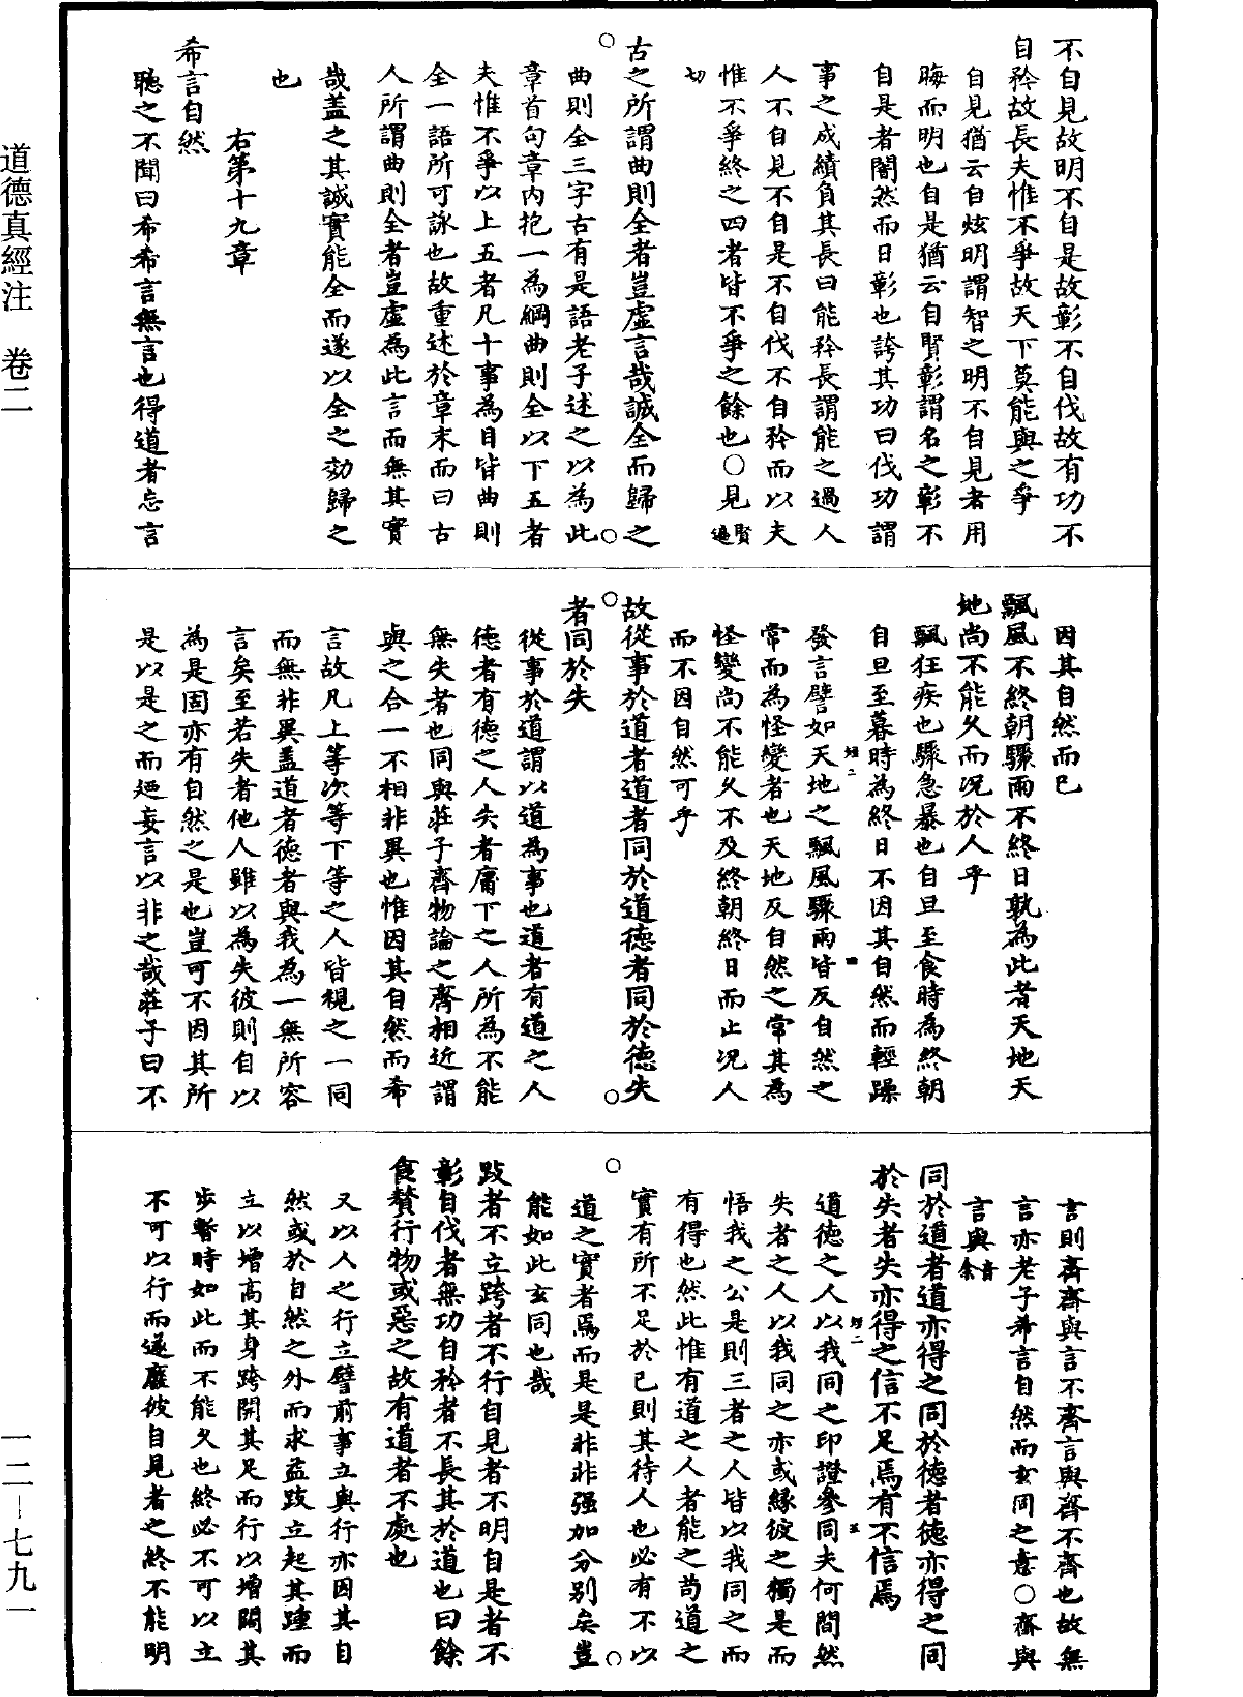 道德真經注　卷二
不自見故明不自是故彰不自伐故有功不
自矜故長夫惟不爭故天下莫能與之爭
自見猶云自炫明謂智之明不自見者用
晦而明也自是猶云自賢彰謂名之彰不
自是者闇然而日彰也誇其功曰伐功謂
事之成績負其長曰能矜長謂能之過人
人不自見不自是不自伐不自矜而以夫
惟不爭終之四者皆不爭之餘也○見賢遍
切
古之所謂曲則全者豈虛言哉誠全而歸之
曲則全三字古有是語老子述之以為此
章首句章內抱一為綱曲則全以下五者
夫惟不爭以上五者凡十事為目皆曲則
全一語所可詠也故重述於章末而曰古
人所謂曲則全者豈虛為此言而無其實
哉蓋之其誠實能全而遂以全之効歸之
也
右第十九章
希言自然
聽之不聞曰希希言無言也得道者忘言
因其自然而已
飄風不終朝驟雨不終日孰為此者天地天
地尚不能久而况於人乎
飄狂疾也驟急暴也自旦至食時為終朝
自旦至暮時為終日不因其自然而輕躁
發言譬如天地之飄風驟雨皆反自然之
常而為怪變者也天地反自然之常其為
怪變尚不能久不及終朝終日而止况人
而不因自然可乎
故從事於道者道者同於道德者同於德失
者同於失
從事於道謂以道為事也道者有道之人
德者有德之人失者庸下之人所為不能
無失者也同與莊子齊物論之齊相近謂
與之合一不相非異也惟因其自然而希
言故凡上等次等下等之人皆視之一同
而無非異蓋道者德者與我為一無所容
言矣至若失者他人雖以為失彼則自以
為是固亦有自然之是也豈可不因其所
是以是之而廼妄言以非之哉莊子曰不
言則齊齊與言不齊言與齊不齊也故無
言亦老子希言自然而玄同之意○齊與
言與音余
同於道者道亦得之同於德者德亦得之同
於失者失亦得之信不足焉有不信焉
道德之人以我同之印證參同夫何間然
失者之人以我同之亦或緣彼之獨是而
悟我之公是則三者之人皆以我同之而
有得也然此惟有道之人者能之苟道之
實有所不足於己則其待人也必有不以
道之實者焉而是是非非强加分别矣豈
能如此玄同也哉
跂者不立跨者不行自見者不明自是者不
彰自伐者無功自矜者不長其於道也曰餘
食贅行物或惡之故有道者不處也
又以人之行立譬前事立與行亦因其自
然或於自然之外而求益跂立起其踵而
立以增高其身跨開其足而行以增闊其
步暫時如此而不能久也終必不可以立
不可以行而遂廢彼自見者之終不能明
一二－七九一